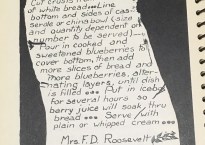 Cut crusts
of white bread...Line
bottom and sides of cas-
serole or china bowl (size
and quantity dependent on
number to be served) —
Pour in cooked and
sweetened blueberries to
cover bottom, then add
more slices of bread and
more blueberries, alter-
nating layers, until dish
is filled ... Put in icebox
for several hours so
berry juice will soak thru
bread ... Serve with
plain or whipped cream...
Mrs. F.D. Roosevelt